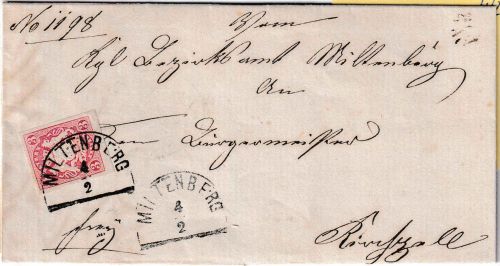 No 1198
Vom
Kgl Bezirksamt Miltenberg
An
Bürgermeister
MILTENBERG
4
2
MILTENBERG
4
2
frei
Kirchzell